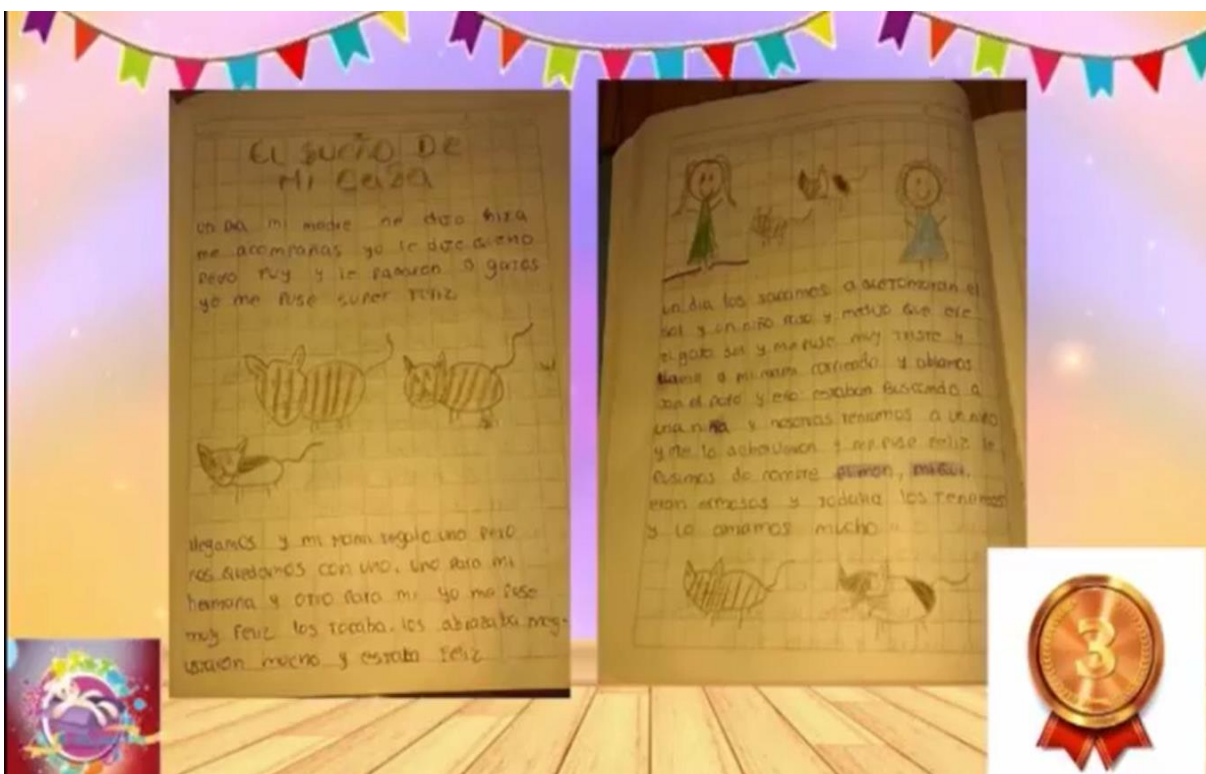 EL SUEÑO DE
MI CASA
un Dia mi madre me dijo hija
me acompañas yo le dije bueno
Pero Fuy y le Pasaron 3 gatos
yo me Puse super Feliz
llegamos y mi mami regalo uno Pero
nos quedamos con uno, uno Para mi
hermana y otro Para mi yo me Puse
muy Feliz los Tocaba, los abrazaba me g-
ustaron mucho y estaba Feliz
un dia los sacamos a que Tomaran el
sol y un niño Paso y
el gato y me Puse muy Triste y
llame a mi mami corriendo y abiamos
con el y eso estaban Buscando a
una niña y nosotras Teniamos a un niño
y me lo y me Puse Feliz le
Pusimos de nombre
eran ermosos y Todavia los Tenemos
y lo amamos mucho
3